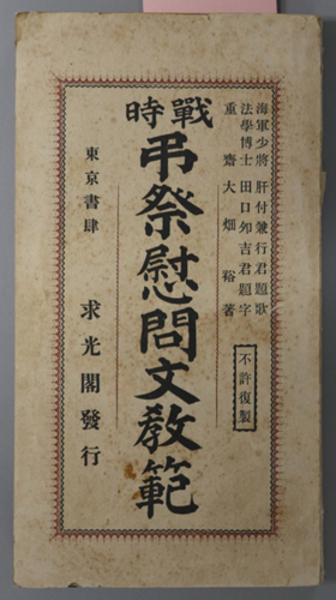 海軍少將 肝付兼行君題歌
法學博士 田口卯吉君題字
重齋 大畑裕著
不許復製
戰時
弔祭慰問文教範
東京書肆
求光閣發行